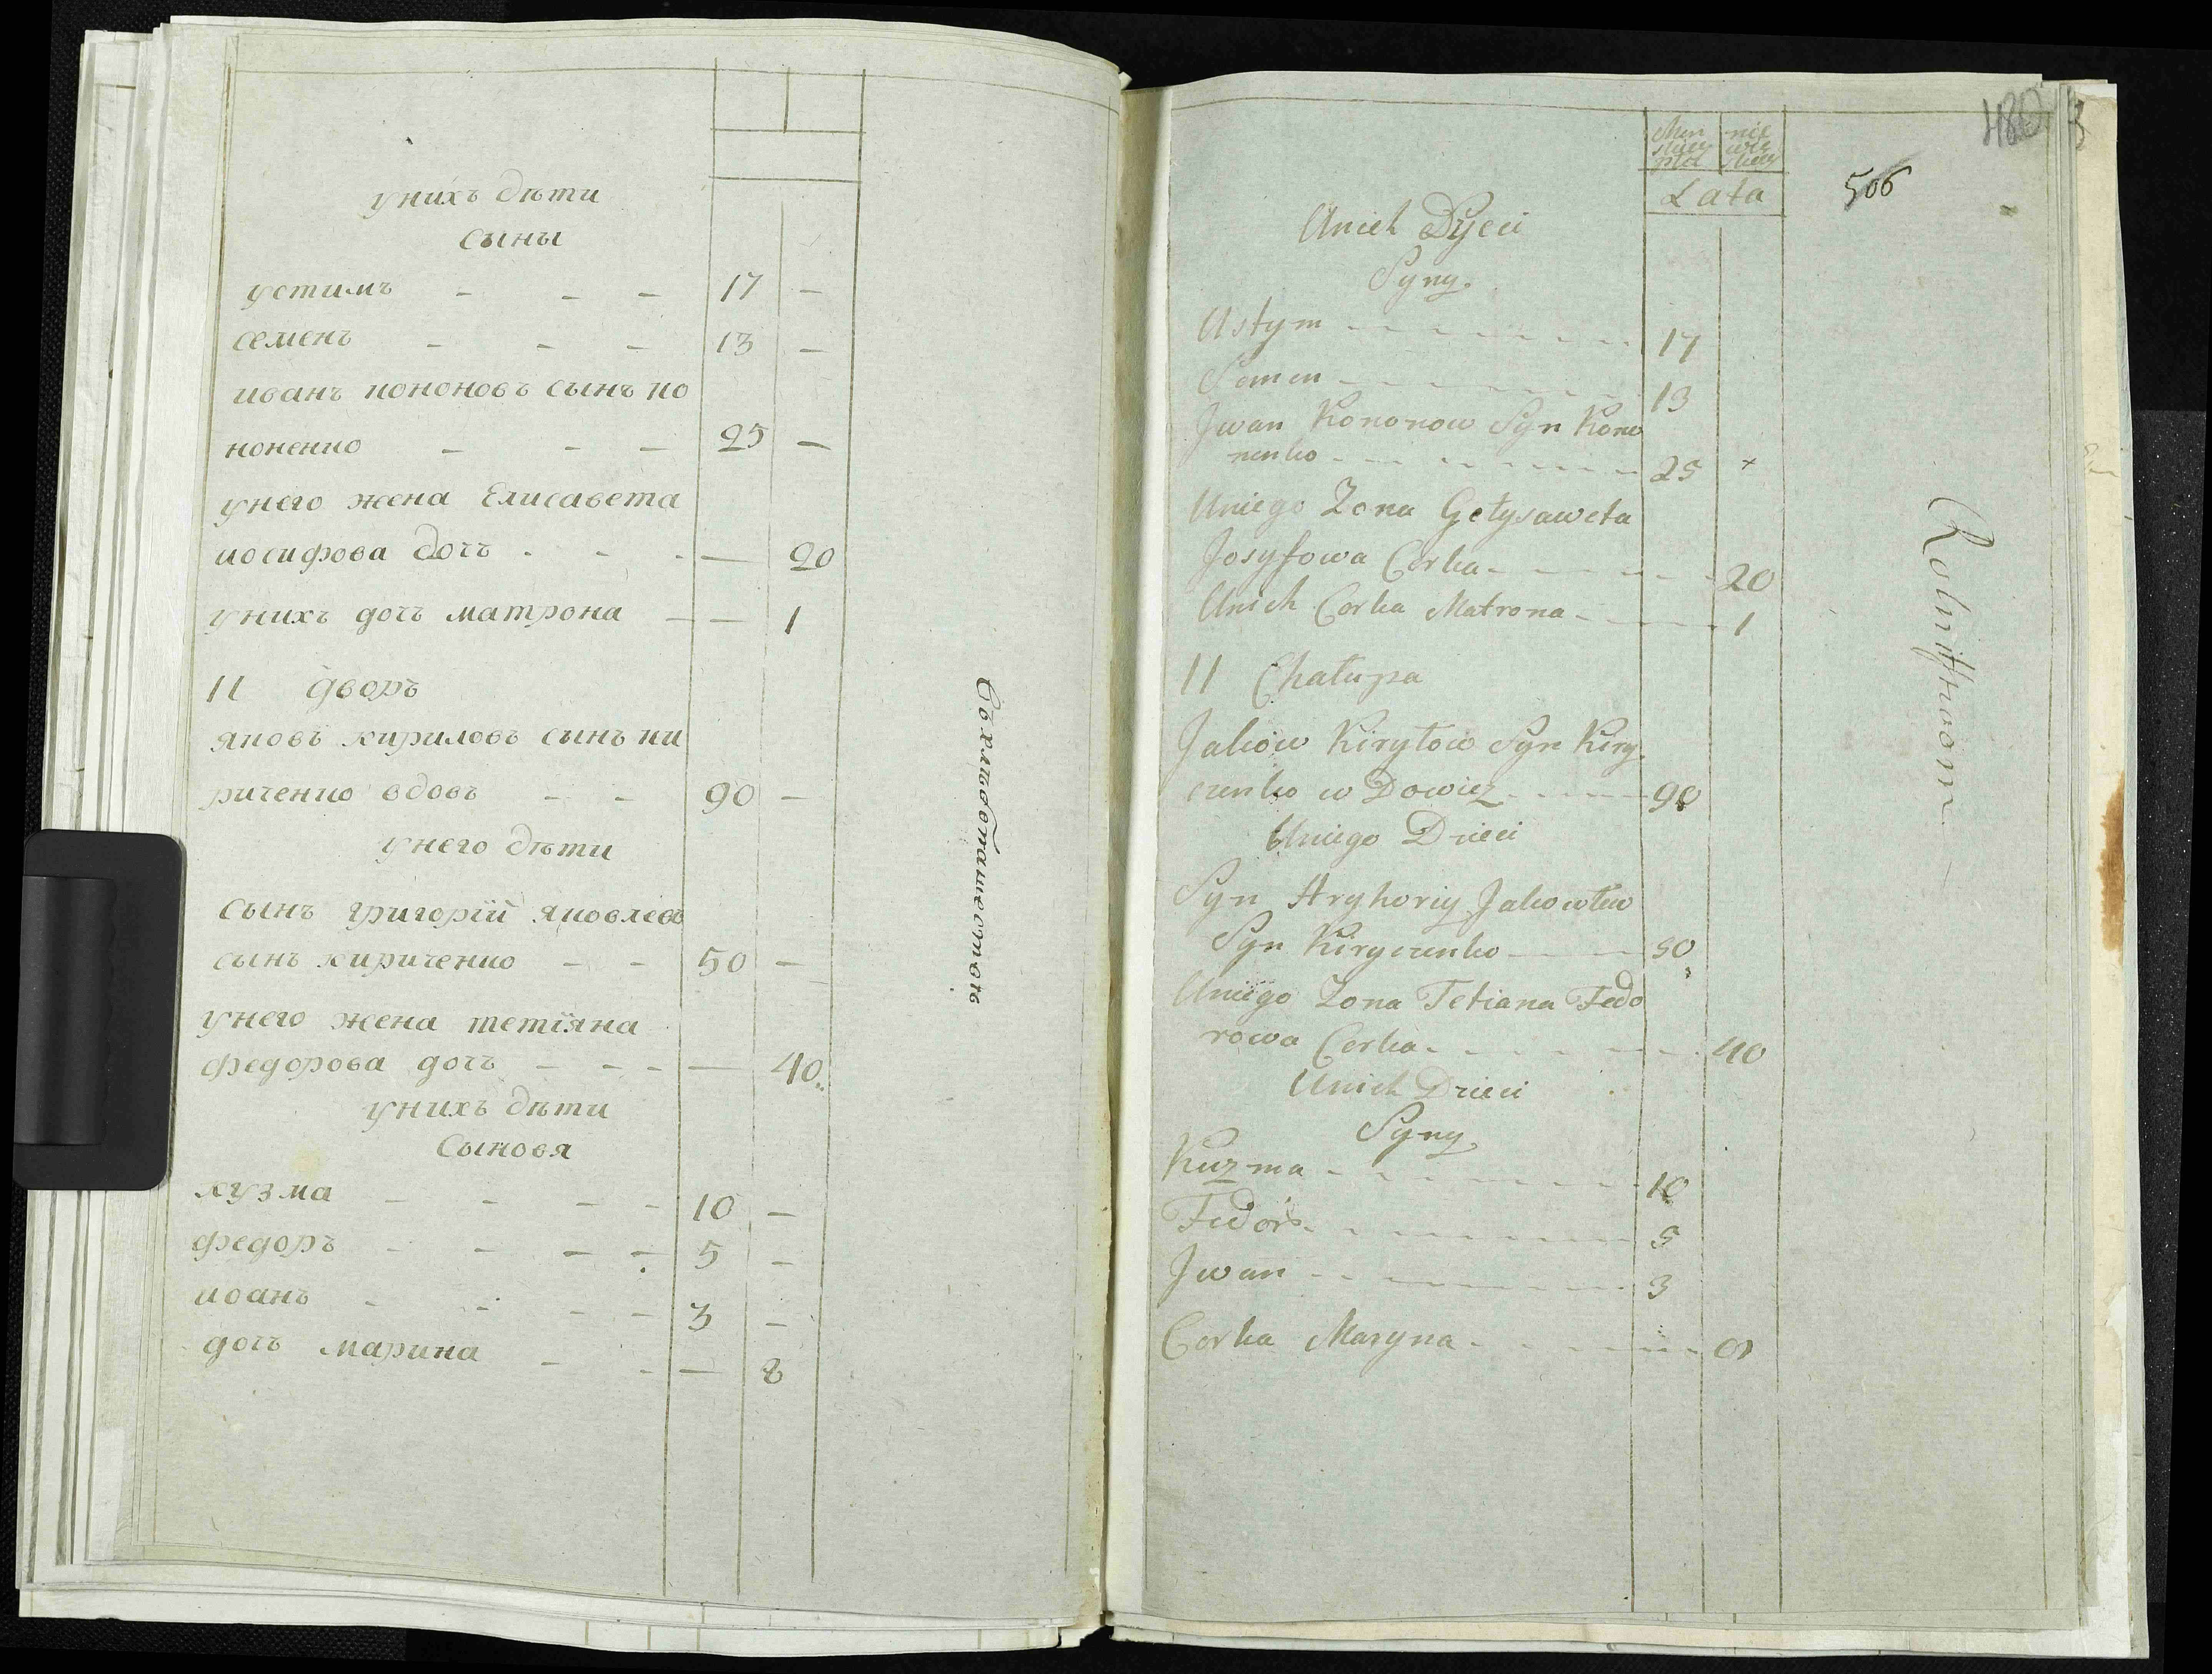 унихъ дѣти
сыны
устимъ - - - 17 -
семенъ - - - 13 -
иванъ кононовъ сынъ ко
ноненко - - - 25 -
унего жена Елисавета
иосифова дочъ - - - — 20
унихъ дочъ матрона — — 1
11 дворъ
яковъ кириловъ сынъ ки
риченко вдовъ - - 90 -
унего дѣти
сынъ григорїй яковлевъ
сынъ кириченко - - 50 -
унего жена тетїяна
федорова дочъ - - - — 40
унихъ дѣти
Сыновя
кузма - - - - 10 -
федоръ - - - - 5 -
иоанъ - - - - 3 -
дочъ марина - - — 8
Схлѣбопашества
480
506
Men skiey płci
nie wie skiey
Lata
Unich Dzieci
Syny.
Ustym - - - - 17
Semen - - - - 13
Jwan Kononow Syn Kono
nenko - - - - 25 +
Uniego Zona Jełysaweta
Josyfowa Corka - - - - 20
Unich Corka Matrona - - - 1
11 Chałupa
Jakow Kiryłow Syn Kiry
czenko w Dowiez - - - 90
Uniego Dzieci
Syn Hryhoriy Jakowlew
Syn Kiryczenko — — 50
Uniego Zona Tetiana Fedo
rowa Corka - - - - 40
Unich Dzieci
Syny
Kuzma - - - - 10
Fedor - - - - 5
Jwan - - - - 3
Corka Maryna - - - - 8